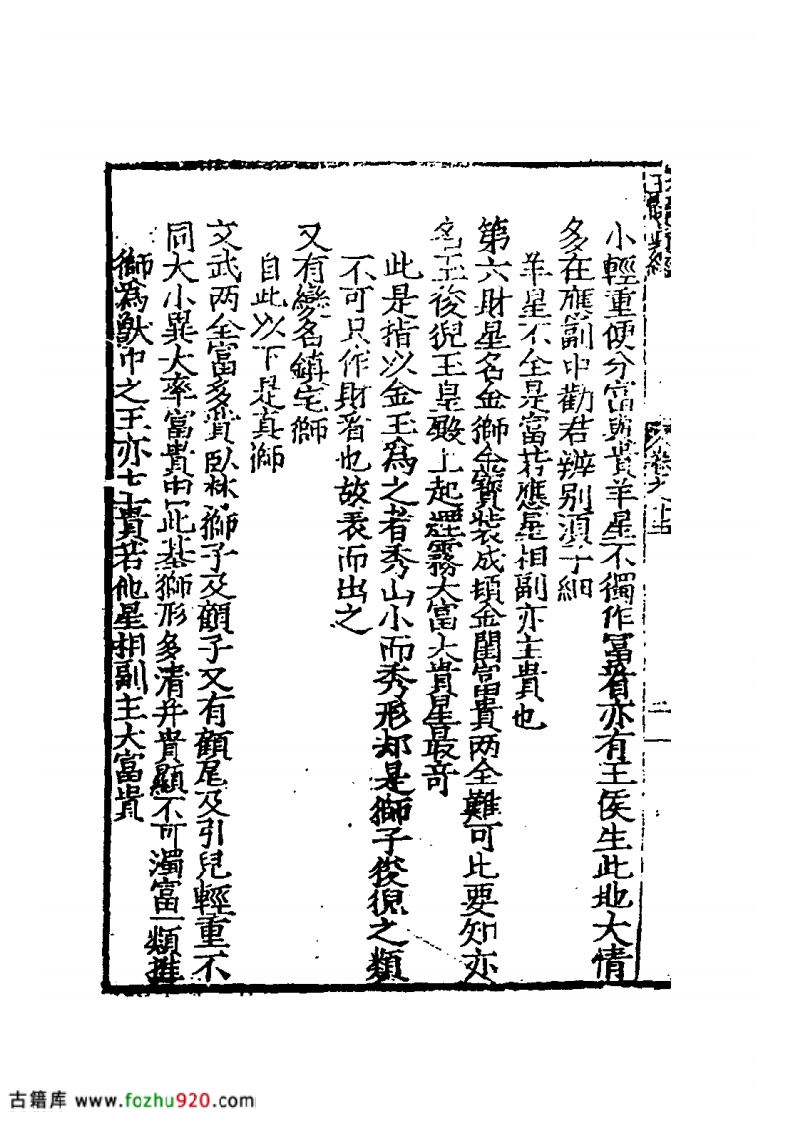 小輕重便分富與貴羊星不獨作富看亦有王侯生此地大情
多在應副中勸君辨別須子細
羊星不全是富若應星相副亦主貴也
第六財星名金獅金寶裝成頓金閨富貴两全難可比要知亦
名玉後猊玉皇殿上起煙霧大富大貴星最奇
此是指以金玉為之者秀山小而秀形却是獅子後猊之類
不可只作財看也故表而出之
又有變名鎮宅獅
自此以下是真獅
文武两全富多貴臥林獅子及顧子又有顧尾及引兒輕重不
同大小異大率富貴由此基獅形多清并貴顯不可濁富一類推
獅為獸中之王亦七主貴若他星相副主大富貴
卷九
古籍库 www.fozhu920.com